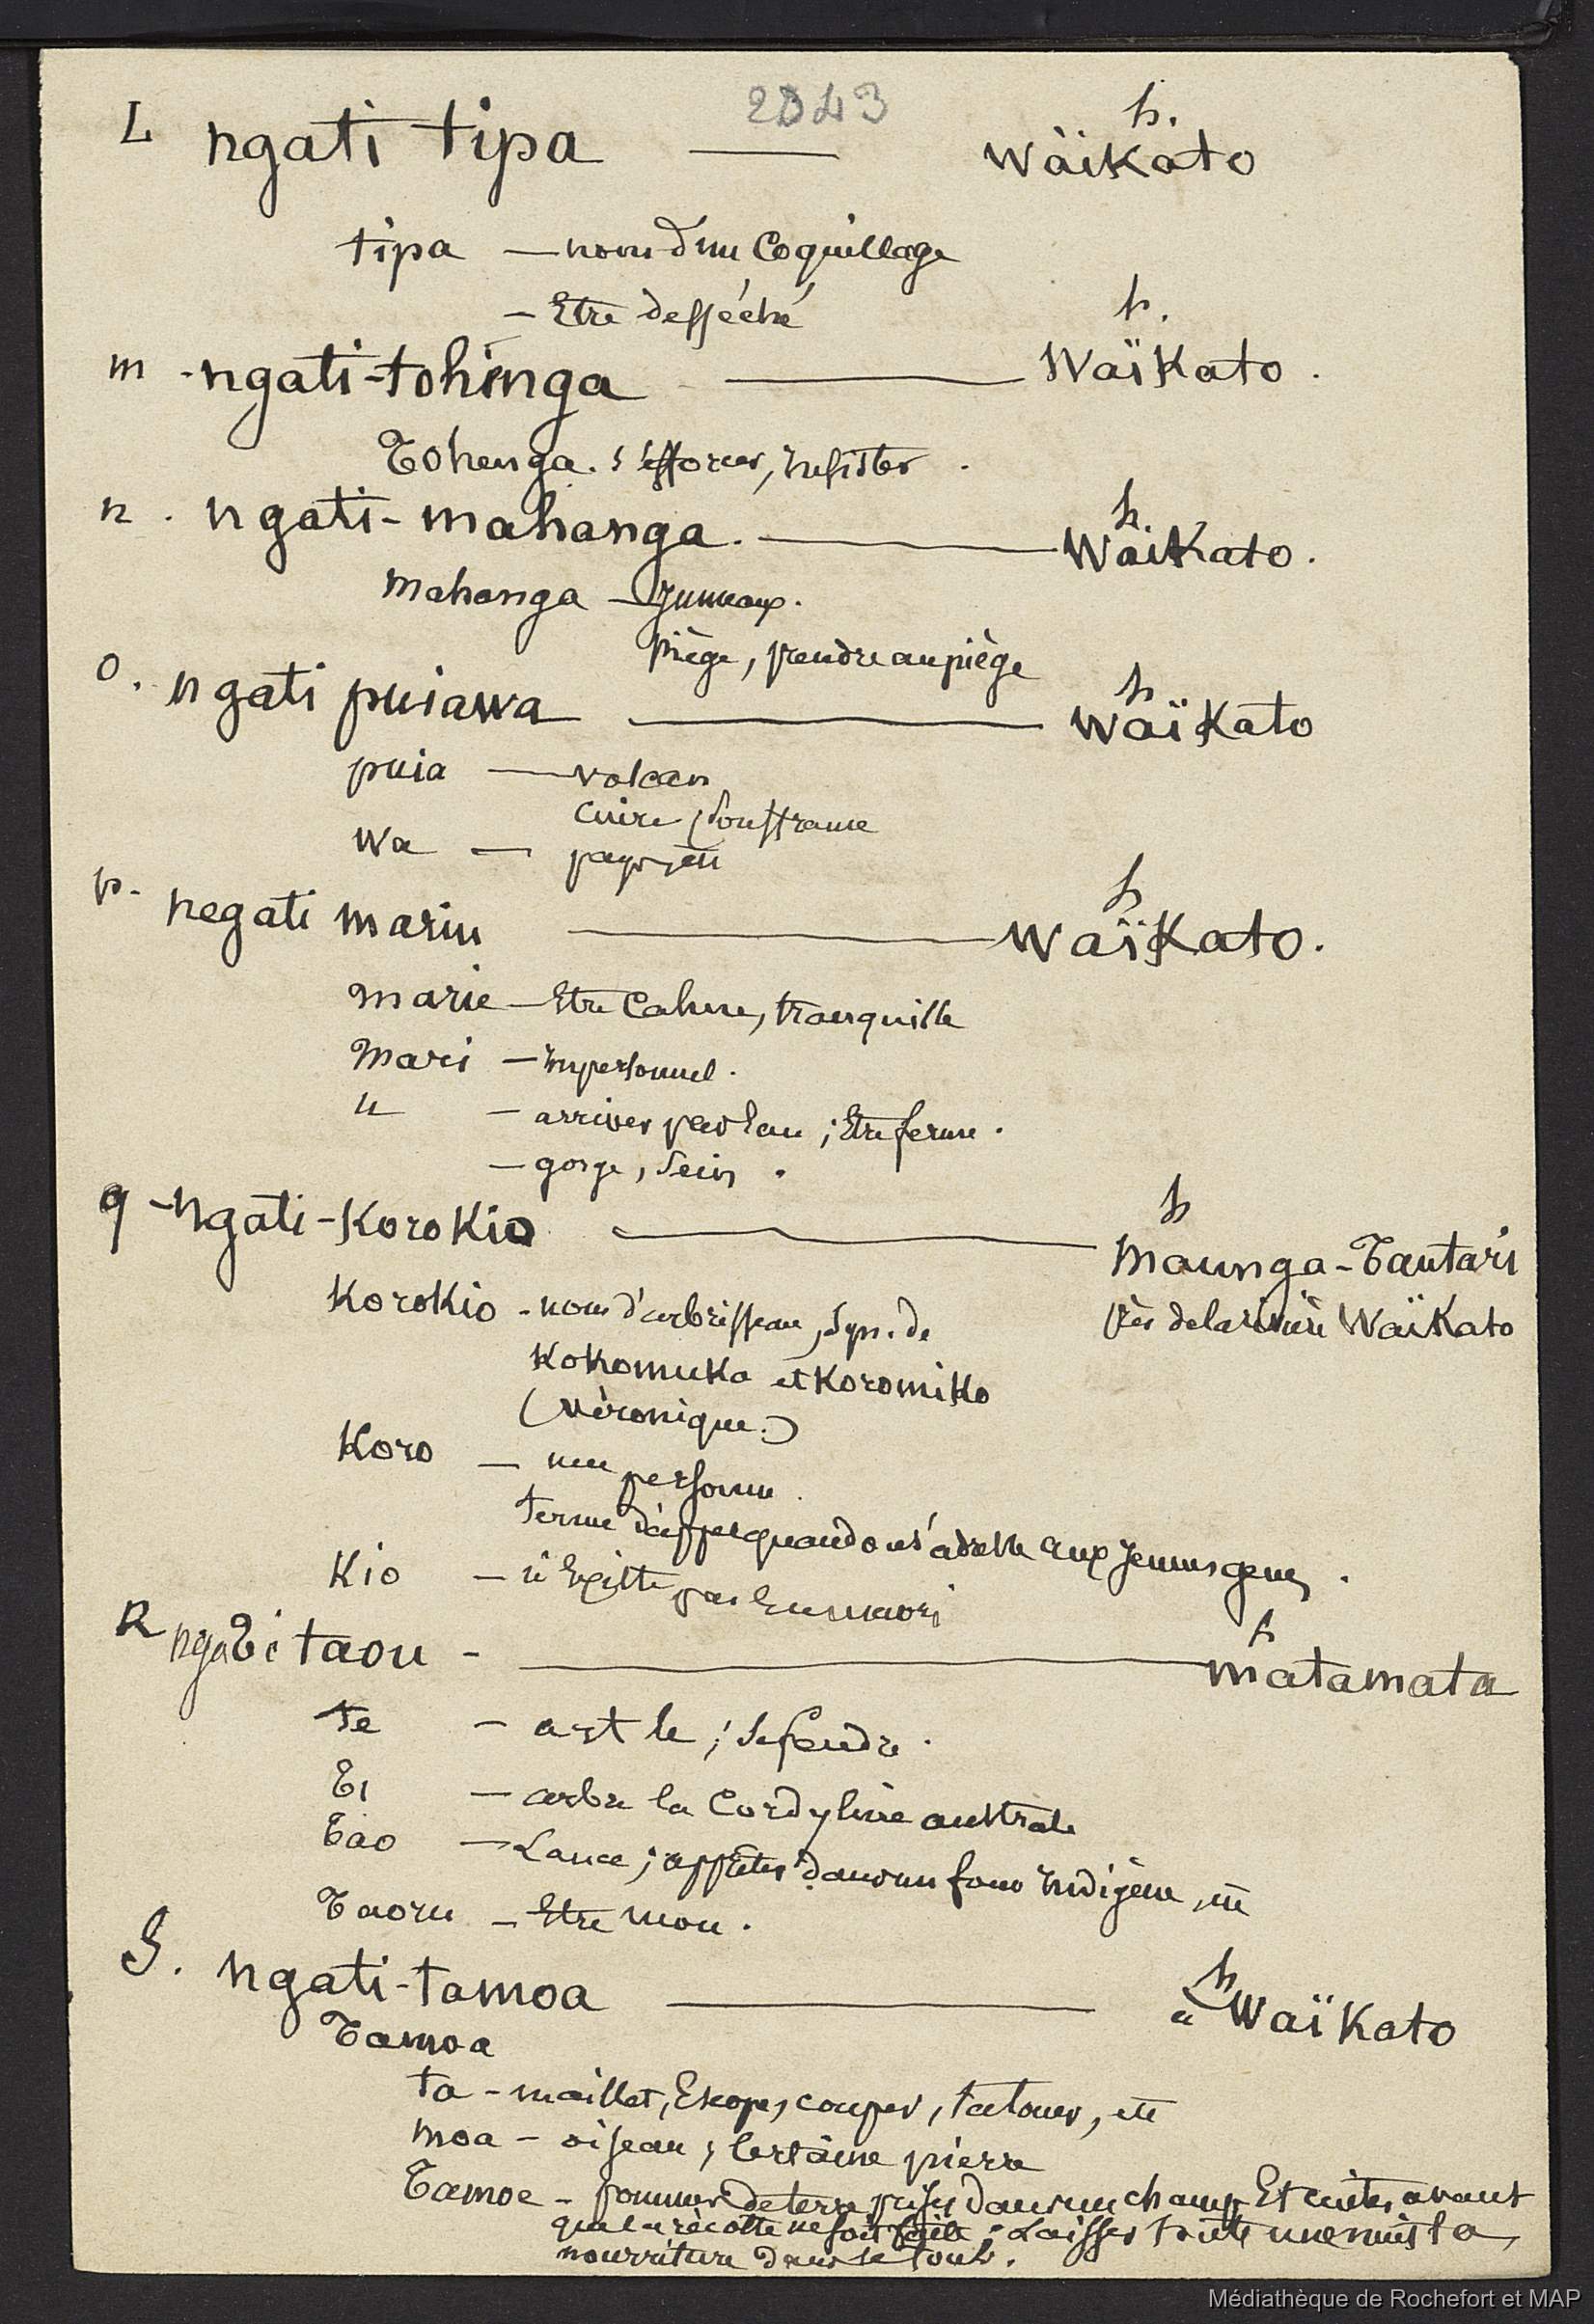 2343
L ngati tipa — h. Wäikato
tipa — nom d'un Coquillage
— Etre desséché
m - ngati-tohinga — h. Waïkato.
Tohenga. s'efforcer, insister.
n. ngati-mahanga. — h. Waïkato.
mahanga — Jumeaux.
piège, prendre au piège
o. ngati puiawa — h Waïkato
puia — volcan
cuire, souffrance
wa — pays, etc
p. negati mariu — h Waïkato.
marie — Etre Calme, tranquille
Mari — impersonnel.
u — arriver par eau ; Etre ferme.
— gorge, Sein.
q - ngati-Korokio — h Maunga-Tautari
près de la rivière Waïkato
Korokio - nom d'arbrisseau, Syn. de
Kokomuka et Koromiko
(véronique.)
Koro — une personne.
terme d'appel quand on s'adresse aux Jeunes gens.
Kio — n'Existe pas En maori
R ngati taou - — h matamata
te — art le ; se fendre.
Ti — arbre la Cordyline australe
Tao — Lance ; apprêter dans un four indigène, etc
Taoru — Etre mou.
S. ngati-tamoa — h a Waïkato
Tamoa
ta - maillet, Ecope, couper, tatouer, etc
moa - oiseau ; Certaine pierre
Tamoe - pommes de terre prises dans un champ Et cuites avant
que la récolte ne soit faite ; Laisser toute une nuit la
nourriture dans le four.
Médiathèque de Rochefort et MAP